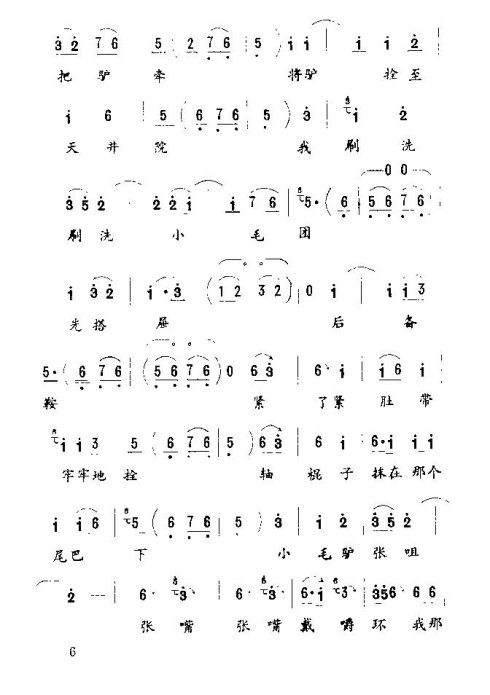 3 2 7 6 5 ( 2 7 6 5 ) i i i 2
把驴牵 将驴 拴至
i 6 5 ( 6 7 6 5 ) 3 i 2
天井院 我刷洗
3 5 2 2 2 i i 7 6 5· ( 5 6 7 6
刷洗小毛团
i 3 2 i· 3 ( 1 2 3 2 ) 0 i i 3
光搭屉 后备
5· ( 6 7 6 5 6 7 6 ) 0 6 3 6· i i 6
鞍 紧了紧肚带
i i 3 5 ( 6 7 6 5 ) 6 3 6 i 6· i i
牢牢地拴 轴棍子抹在那个
i i 6 5 ( 6 7 6 5 ) 3 i 2 3 5 2
尾巴下 小毛驴张咀
2 6· 3 6· 3 6· i 3 3 5 6 6 i
张嘴 张嘴戴嚼环我那
6